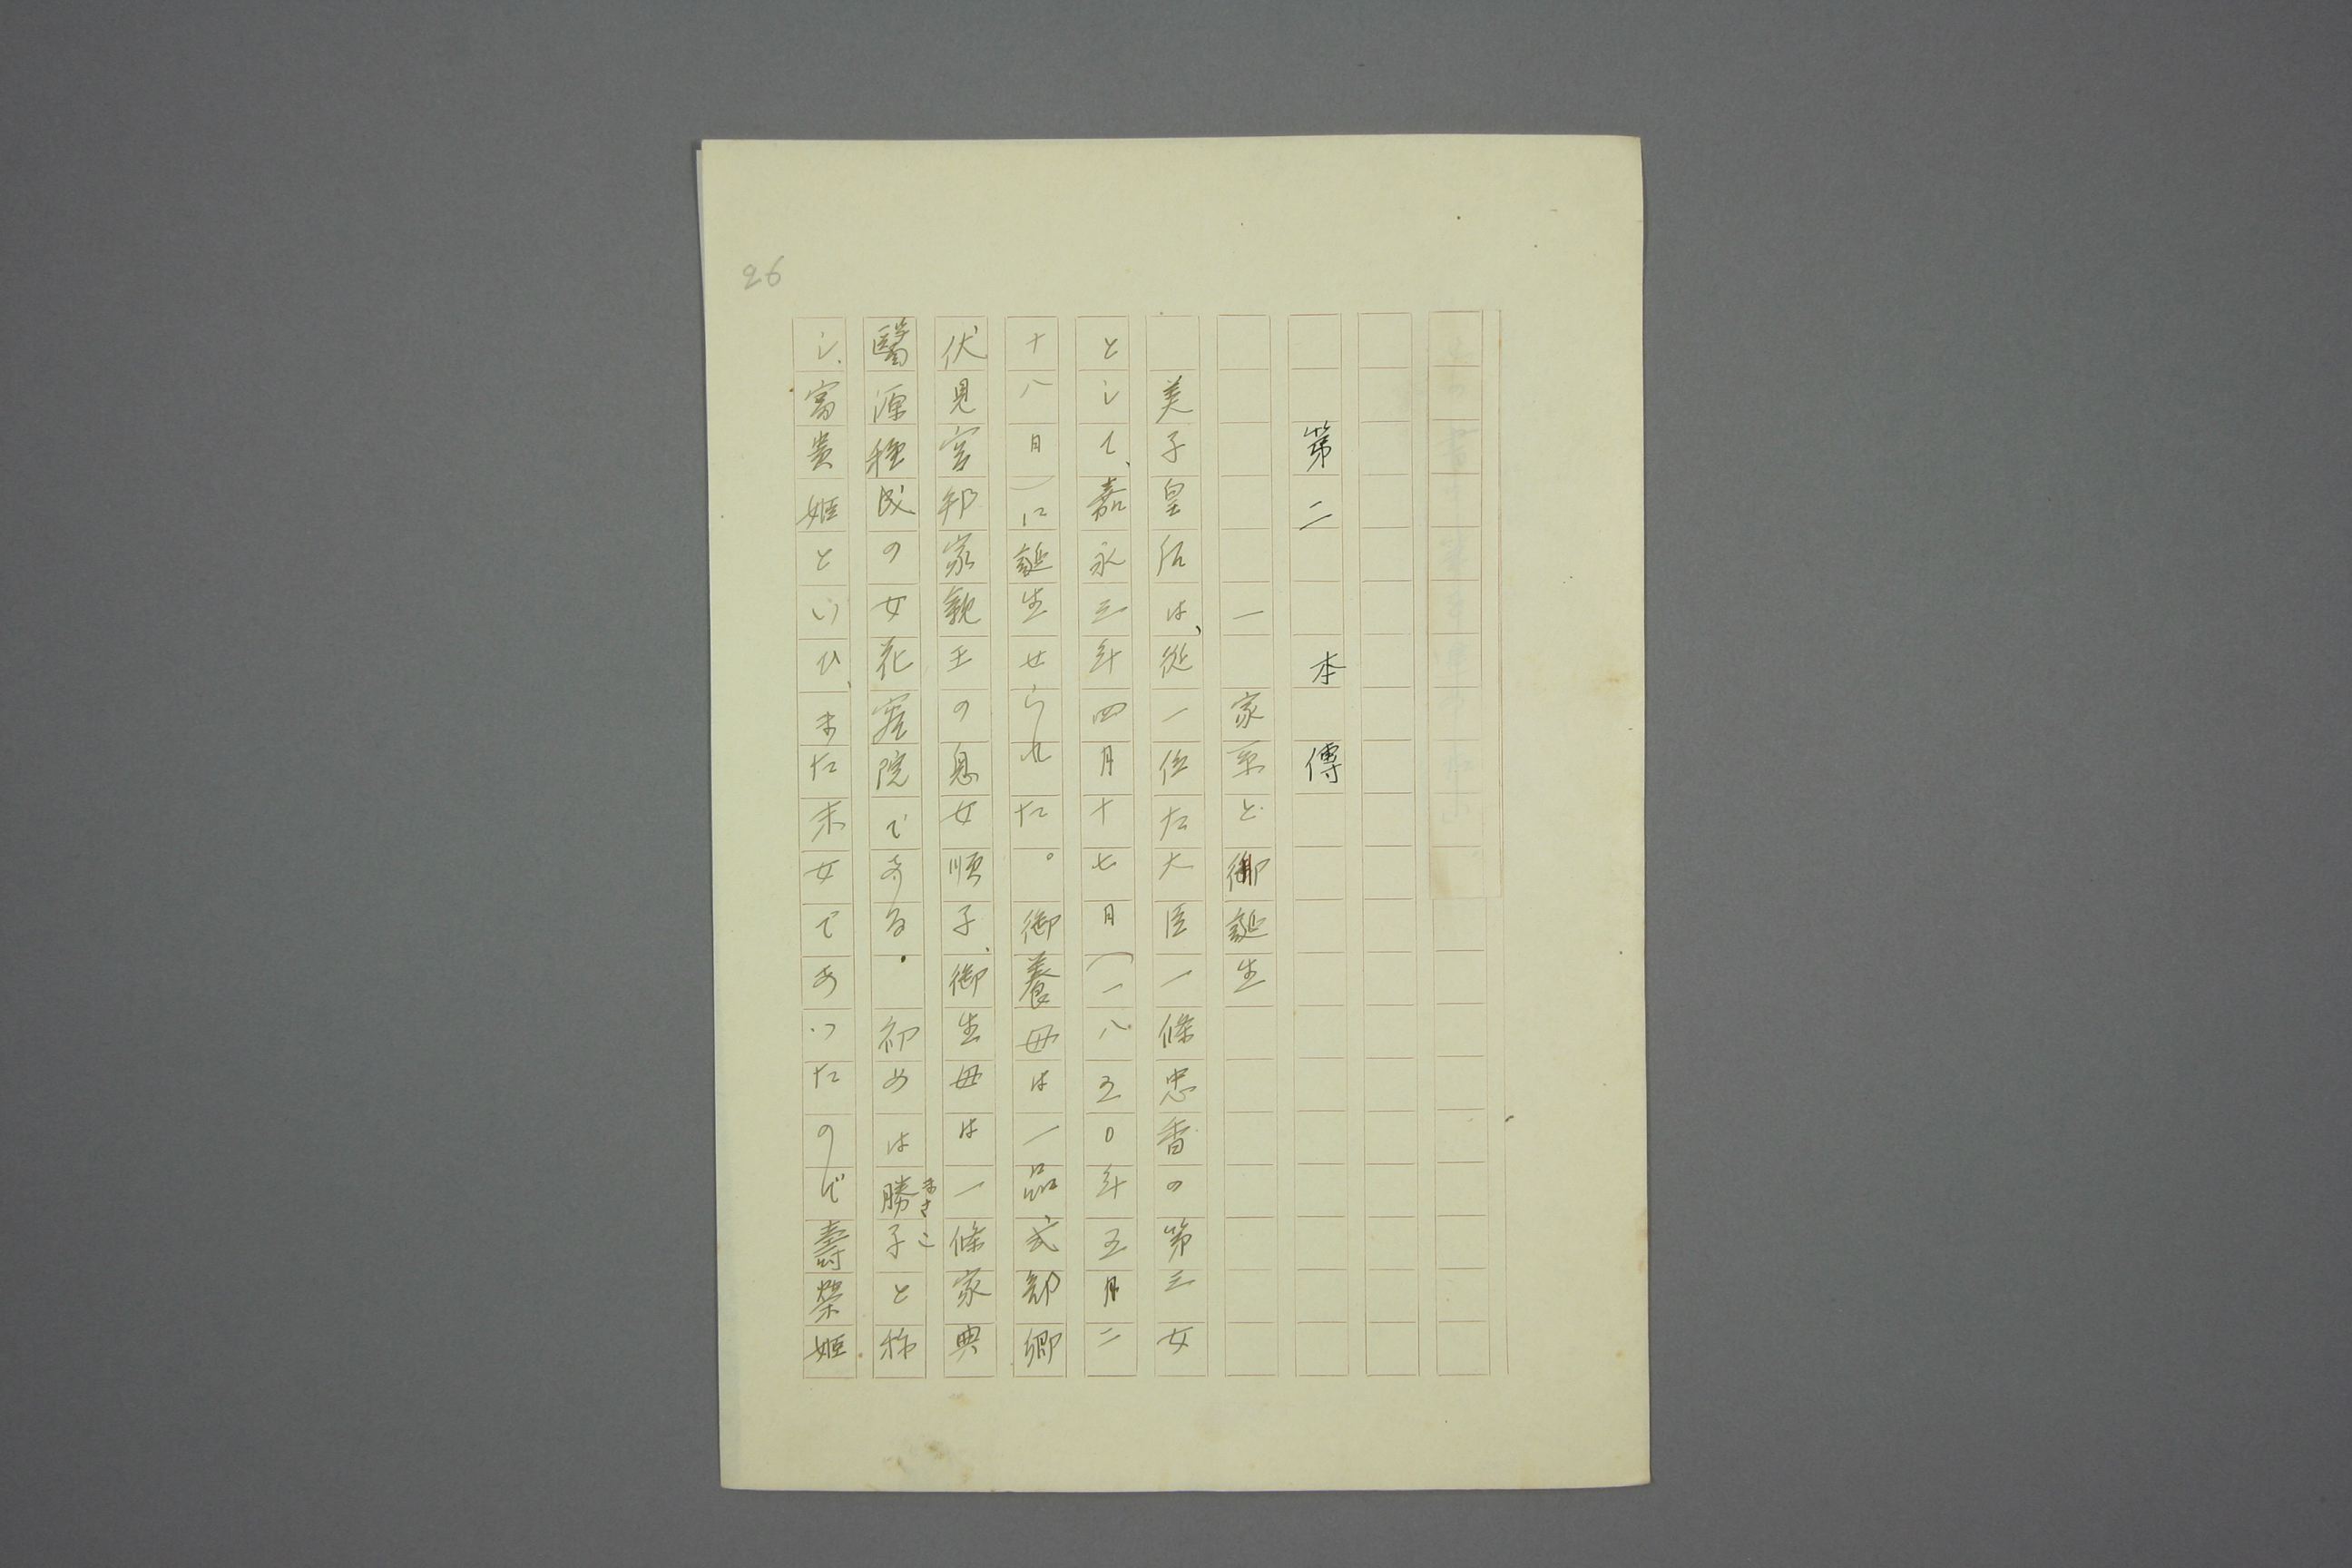 26
第二　本傳
一　家系と御誕生
美子皇后は、従一位左大臣一條忠香の第三女
として、嘉永三年四月十七日（一八五〇年五月二
十八日）に誕生せられた。御養母は一品式部卿
伏見宮邦家親王の息女順子、御生母は一條家典
醫源種成の女花容院である。初めは勝子と称
まさこ
し、富貴姫といひ、また末女であつたので壽榮姫